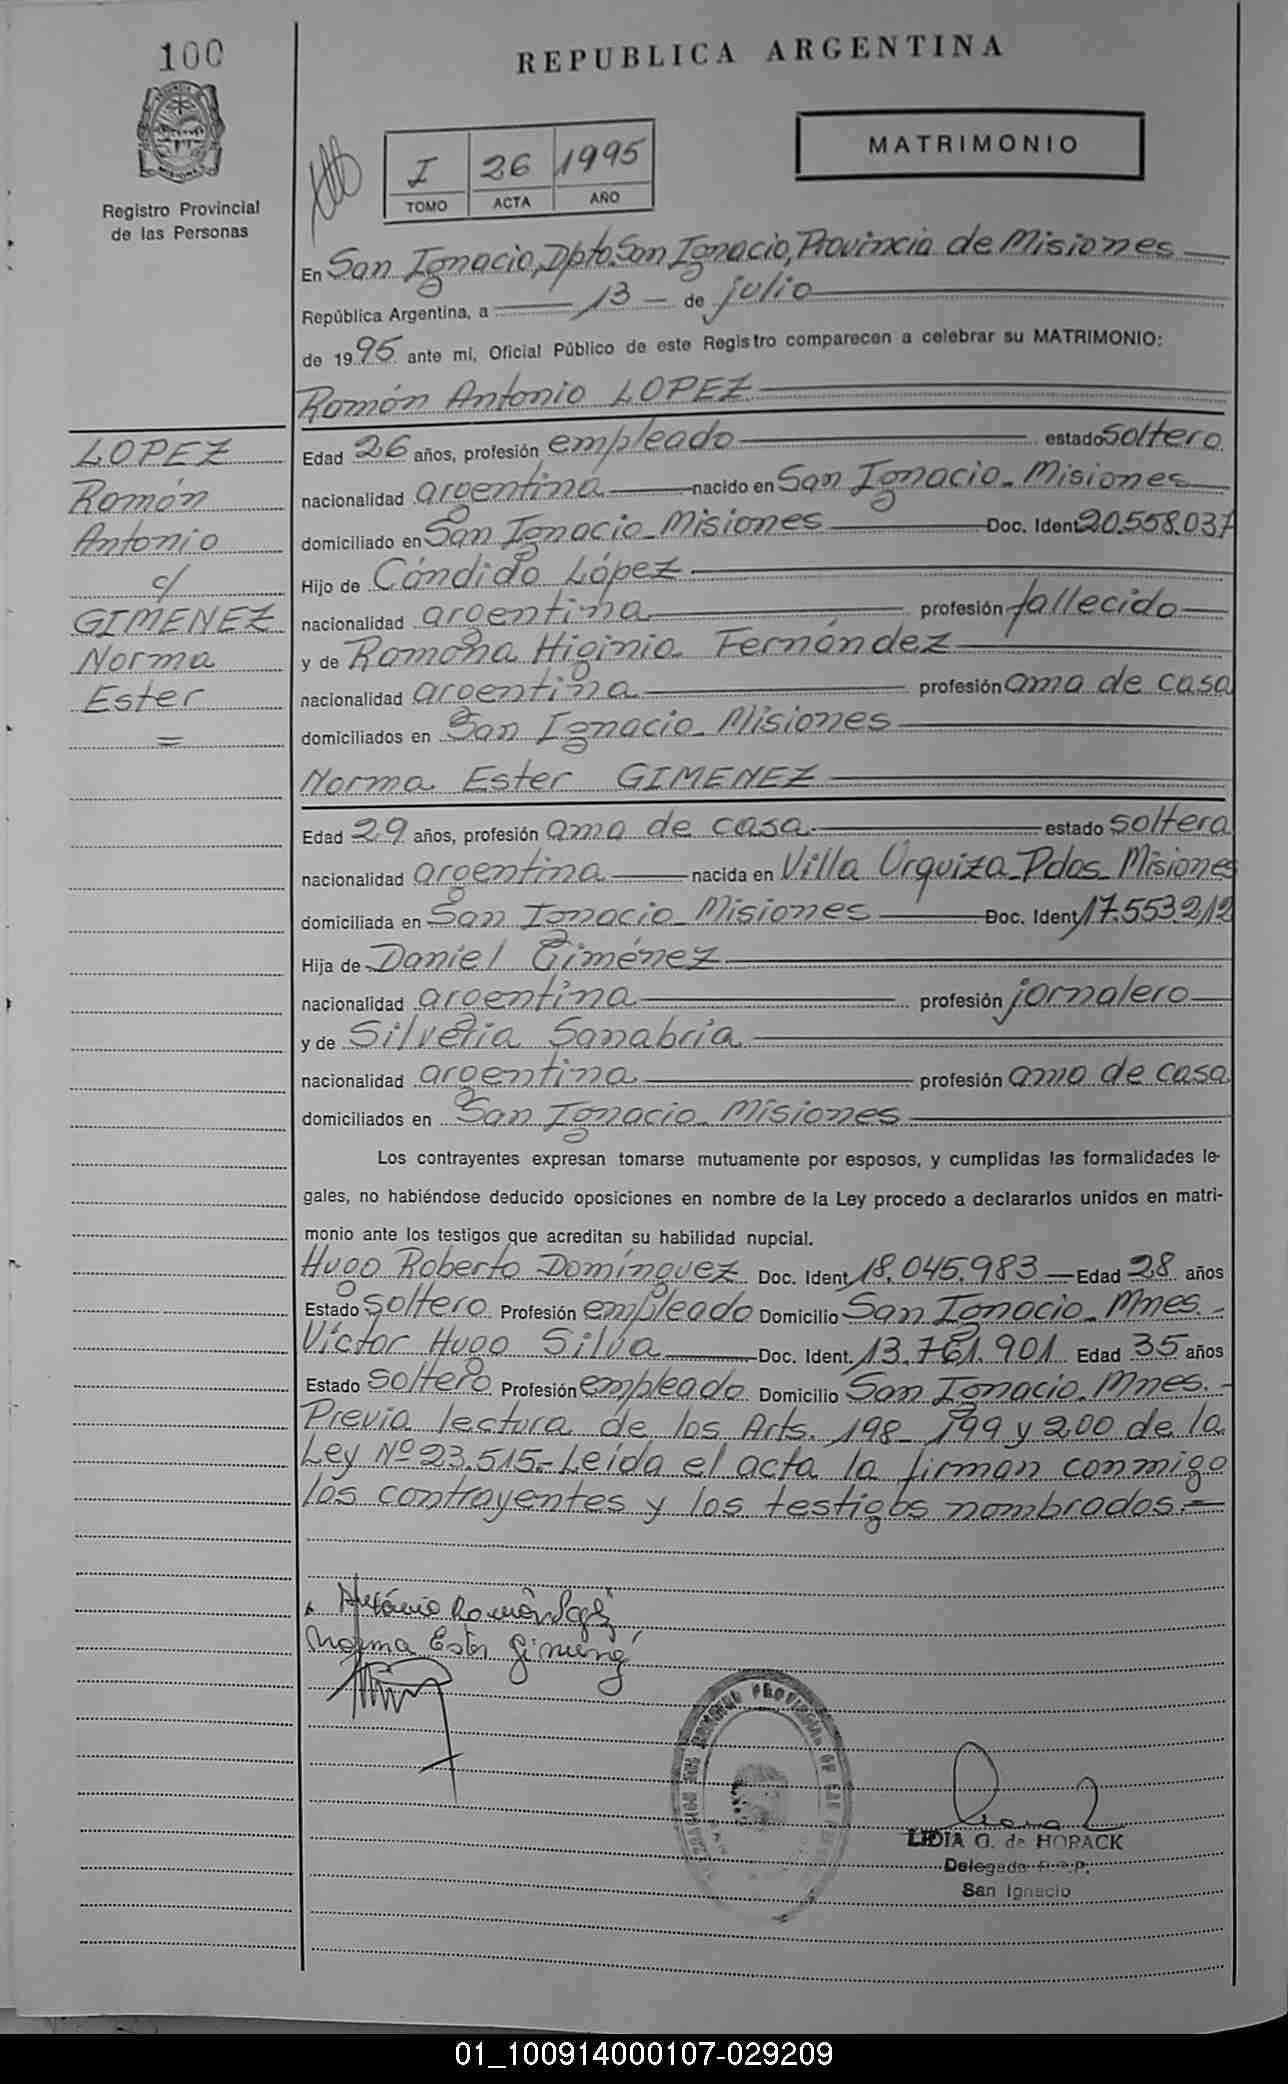 100
REPUBLICA ARGENTINA
MATRIMONIO
I 26 1995
TOMO ACTA AÑO
Registro Provincial
de las Personas
En San Ignacio, Dpto. San Ignacio, Provincia de Misiones
República Argentina, a 13 de julio
de 1995 ante mí, Oficial Público de este Registro comparecen a celebrar su MATRIMONIO:
Ramón Antonio LOPEZ
LOPEZ
Ramón
Antonio
c/
GIMENEZ
Norma
Ester
=
Edad 26 años, profesión empleado estado soltero
nacionalidad argentina nacido en San Ignacio - Misiones
domiciliado en San Ignacio - Misiones Doc. Ident 20.558.037
Hijo de Cándido López
nacionalidad argentina profesión fallecido
y de Ramona Higinia Fernández
nacionalidad argentina profesión ama de casa
domiciliados en San Ignacio - Misiones
Norma Ester GIMENEZ
Edad 29 años, profesión ama de casa estado soltera
nacionalidad argentina nacida en Villa Urquiza - Pdas. Misiones
domiciliada en San Ignacio - Misiones Doc. Ident 17.553.212
Hija de Daniel Giménez
nacionalidad argentina profesión jornalero
y de Silveria Sanabria
nacionalidad argentina profesión ama de casa
domiciliados en San Ignacio - Misiones
Los contrayentes expresan tomarse mutuamente por esposos, y cumplidas las formalidades le-
gales, no habiéndose deducido oposiciones en nombre de la Ley procedo a declararlos unidos en matri-
monio ante los testigos que acreditan su habilidad nupcial.
Hugo Roberto Domínguez Doc. Ident 18.045.983 Edad 28 años
Estado soltero Profesión empleado Domicilio San Ignacio - Mnes. -
Víctor Hugo Silva Doc. Ident. 13.761.901 Edad 35 años
Estado soltero Profesión empleado Domicilio San Ignacio. Mnes. -
Previa lectura de los Arts. 198 - 199 y 200 de la
Ley Nº 23.515.- Leída el acta la firman conmigo
los contrayentes y los testigos nombrados.=
António Román
Norma Ester Gimenez
LIDIA G. de HORACK
Delegada R.P.P.
San Ignacio
01_100914000107-029209